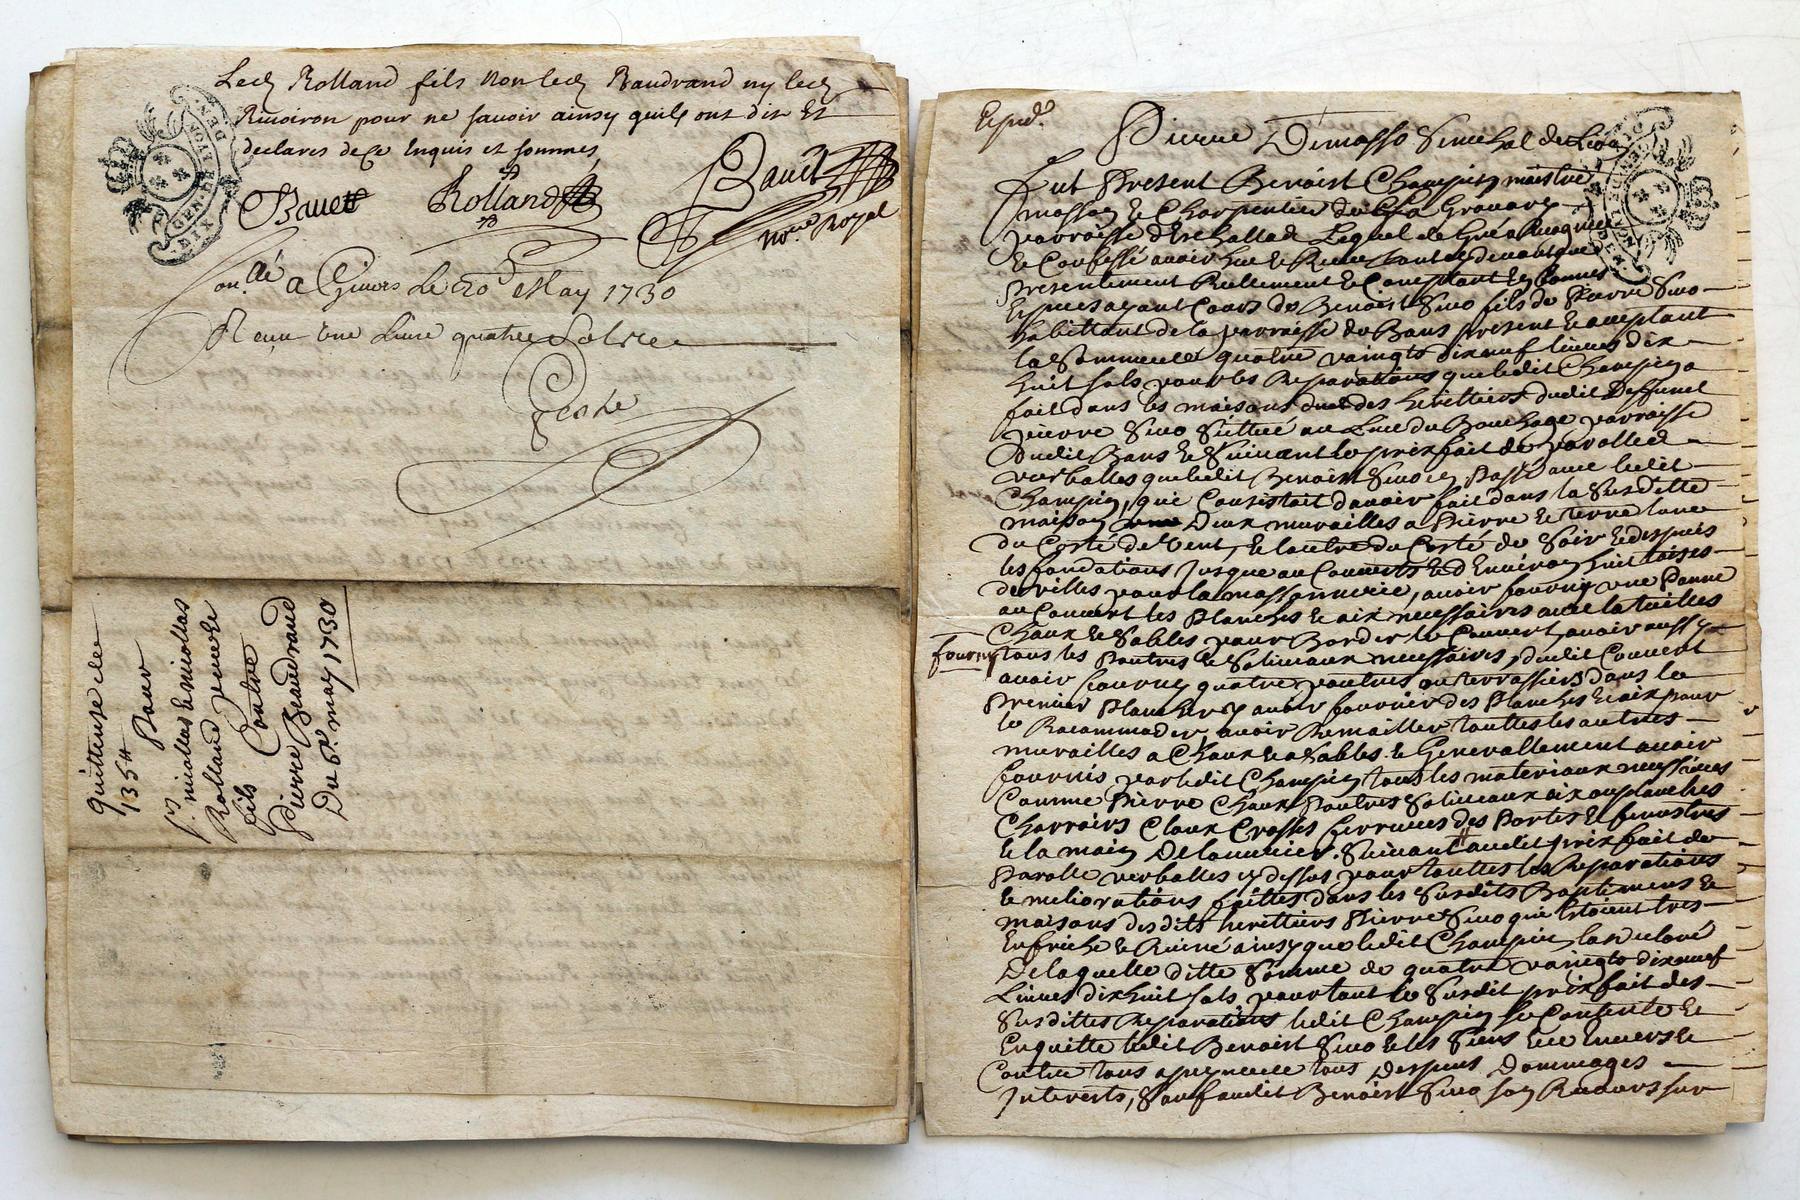 Led. Rolland fils non led. Baudrand ny led.
Rivoiron pour ne savoir ainsy quils ont dit Et
declares de ce Enquis et sommes
Rolland
no.re Royal
on.llé a Givors le 20 May 1730
Receu une Livre quatre Sols
GENE DE LYON
quittense de
135 ₶
Pour
s.rs nicollas & nicollas
Rolland pere &
fils
Contre
Pierre Baudrand
Du 6.e may 1730
Exped.
Pierre
Fut Present Benoist Champin maistre
masson & Charpentier du
parroisse d'Eschallad Lequel de Gré a Recognu
& Confessé avoir heu & Receu
Presentement Reellement & Comptant En bonnes
Especes ayant Cours de Benoist Simo fils de Pierre Simo
habittant de la parroisse de Bans present & acceptant
la Somme de quatre vaingts dixneuf livres dix
huit sols pour les Reparations que ledit Champin a
fait dans les maisons des herittiers dudit Deffunct
pierre Simo Sittué au Lieu du Bouchage parroisse
dudit Bans & Suivant le prix fait de parolles
verballes que ledit Benoist Simo En Passa avec ledit
Champin, qui Consistoit d'avoir fait dans la Susditte
maison Deux murailles a Pierre & terre lune
du Costé de Vent, & lautre du Costé de Soir & despuis
les fondations Jusque au Couverts & d'Environ huit toises
de villes pour la massonnerie, avoir fourny une Panne
au Couvert les Planches & aix necessaires avec la tuilles
Chaux & Sables pour Border le Couvert, avoir aussy
fourny
tous les Poutres & Soliveaux necessaires, dudit Couvert
avoir fourny quatre poutres ou terrassiers dans le
Premier Plancher & avoir fournir des Planches & aix pour
le Racommoder, avoir Remailler touttes les autres
murailles a Chaux & a Sables. & Generallement avoir
fournis par ledit Champin tous les materiaux necessaires
Comme Pierre Chaux Poutres Soliveaux aix ou planches
Charroirs Cloux Crosses ferrures des Portes & fenestres
& la main De louvrier. Suivant audit prix fait de
Parolle verballes cy dessus pour touttes les Reparations
& meliorations faittes dans les Susdits Bastimens &
maisons desdits herittiers Pierre Simo qui Estoient tres
En friche & Ruiné ainsy que ledit Champin la declaré
De laquelle ditte Somme de quatre vaingts dixneuf
Livres dixhuit sols pour tout le Susdit prix fait des
Susdittes Reparations ledit Champin se Contente &
Enquitte ledit Benoist Simo & les Siens & Envers &
Contre tous a peyne de tous Despens Dommages
Interests, Sauf audit Benoist Simo son Recours sur